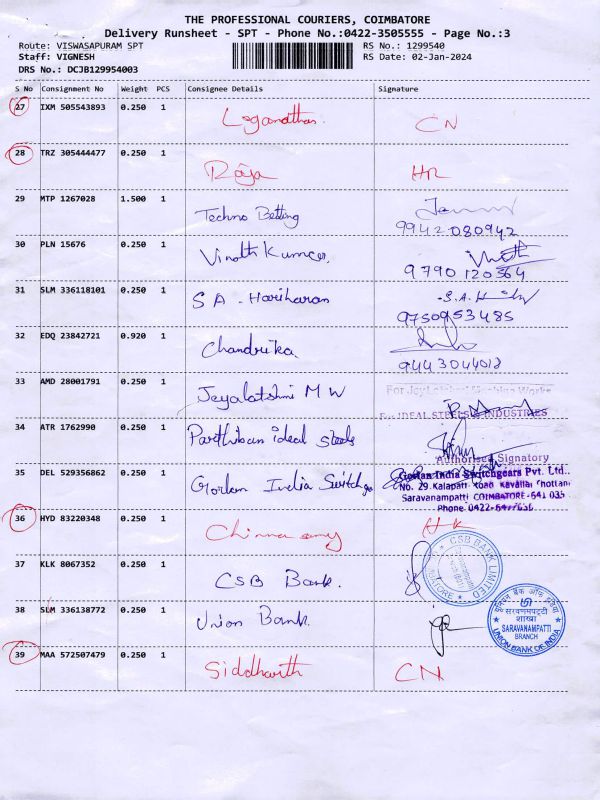 THE PROFESSIONAL COURIERS, COIMBATORE
Delivery Runsheet - SPT - Phone No.:0422-3505555 - Page No.:3
Route: VISWASAPURAM SPT RS No.: 1299540
Staff: VIGNESH RS Date: 02-Jan-2024
DRS No.: DCJB129954003
S No Consignment No Weight PCS Consignee Details Signature
27 IXM 505543893 0.250 1 Loganathan CN
28 TRZ 305444477 0.250 1 Raja HR
29 MTP 1267028 1.500 1 Techno Betting
9942080942
30 PLN 15676 0.250 1 Vinoth Kumar
9790120364
31 SLM 336118101 0.250 1 S A - Hariharan S.A.
9750953485
32 EDQ 23842721 0.920 1 Chandrika
9443044018
33 AMD 28001791 0.250 1 Jeyalatshmi M W
For IDEAL STEELS INDUSTRIES
34 ATR 1762990 0.250 1 Parthiban ideal steels
Authorised Signatory
35 DEL 529356862 0.250 1 Gorlan India Switchge
Gorlan India Switchgears Pvt. Ltd.,
No. 29 Kalapatti Road
Saravanampatti COIMBATORE-641 035
Phone 0422-
36 HYD 83220348 0.250 1 Chinnasamy HK
37 KLK 8067352 0.250 1 CSB Bank.
CSB BANK LIMITED
38 SLM 336138772 0.250 1 Union Bank.
यूनियन बैंक ऑफ इंडिया
சரவணம்பட்டி
शाखा
SARAVANAMPATTI
BRANCH
UNION BANK OF INDIA
39 MAA 572507479 0.250 1 Siddharth CN